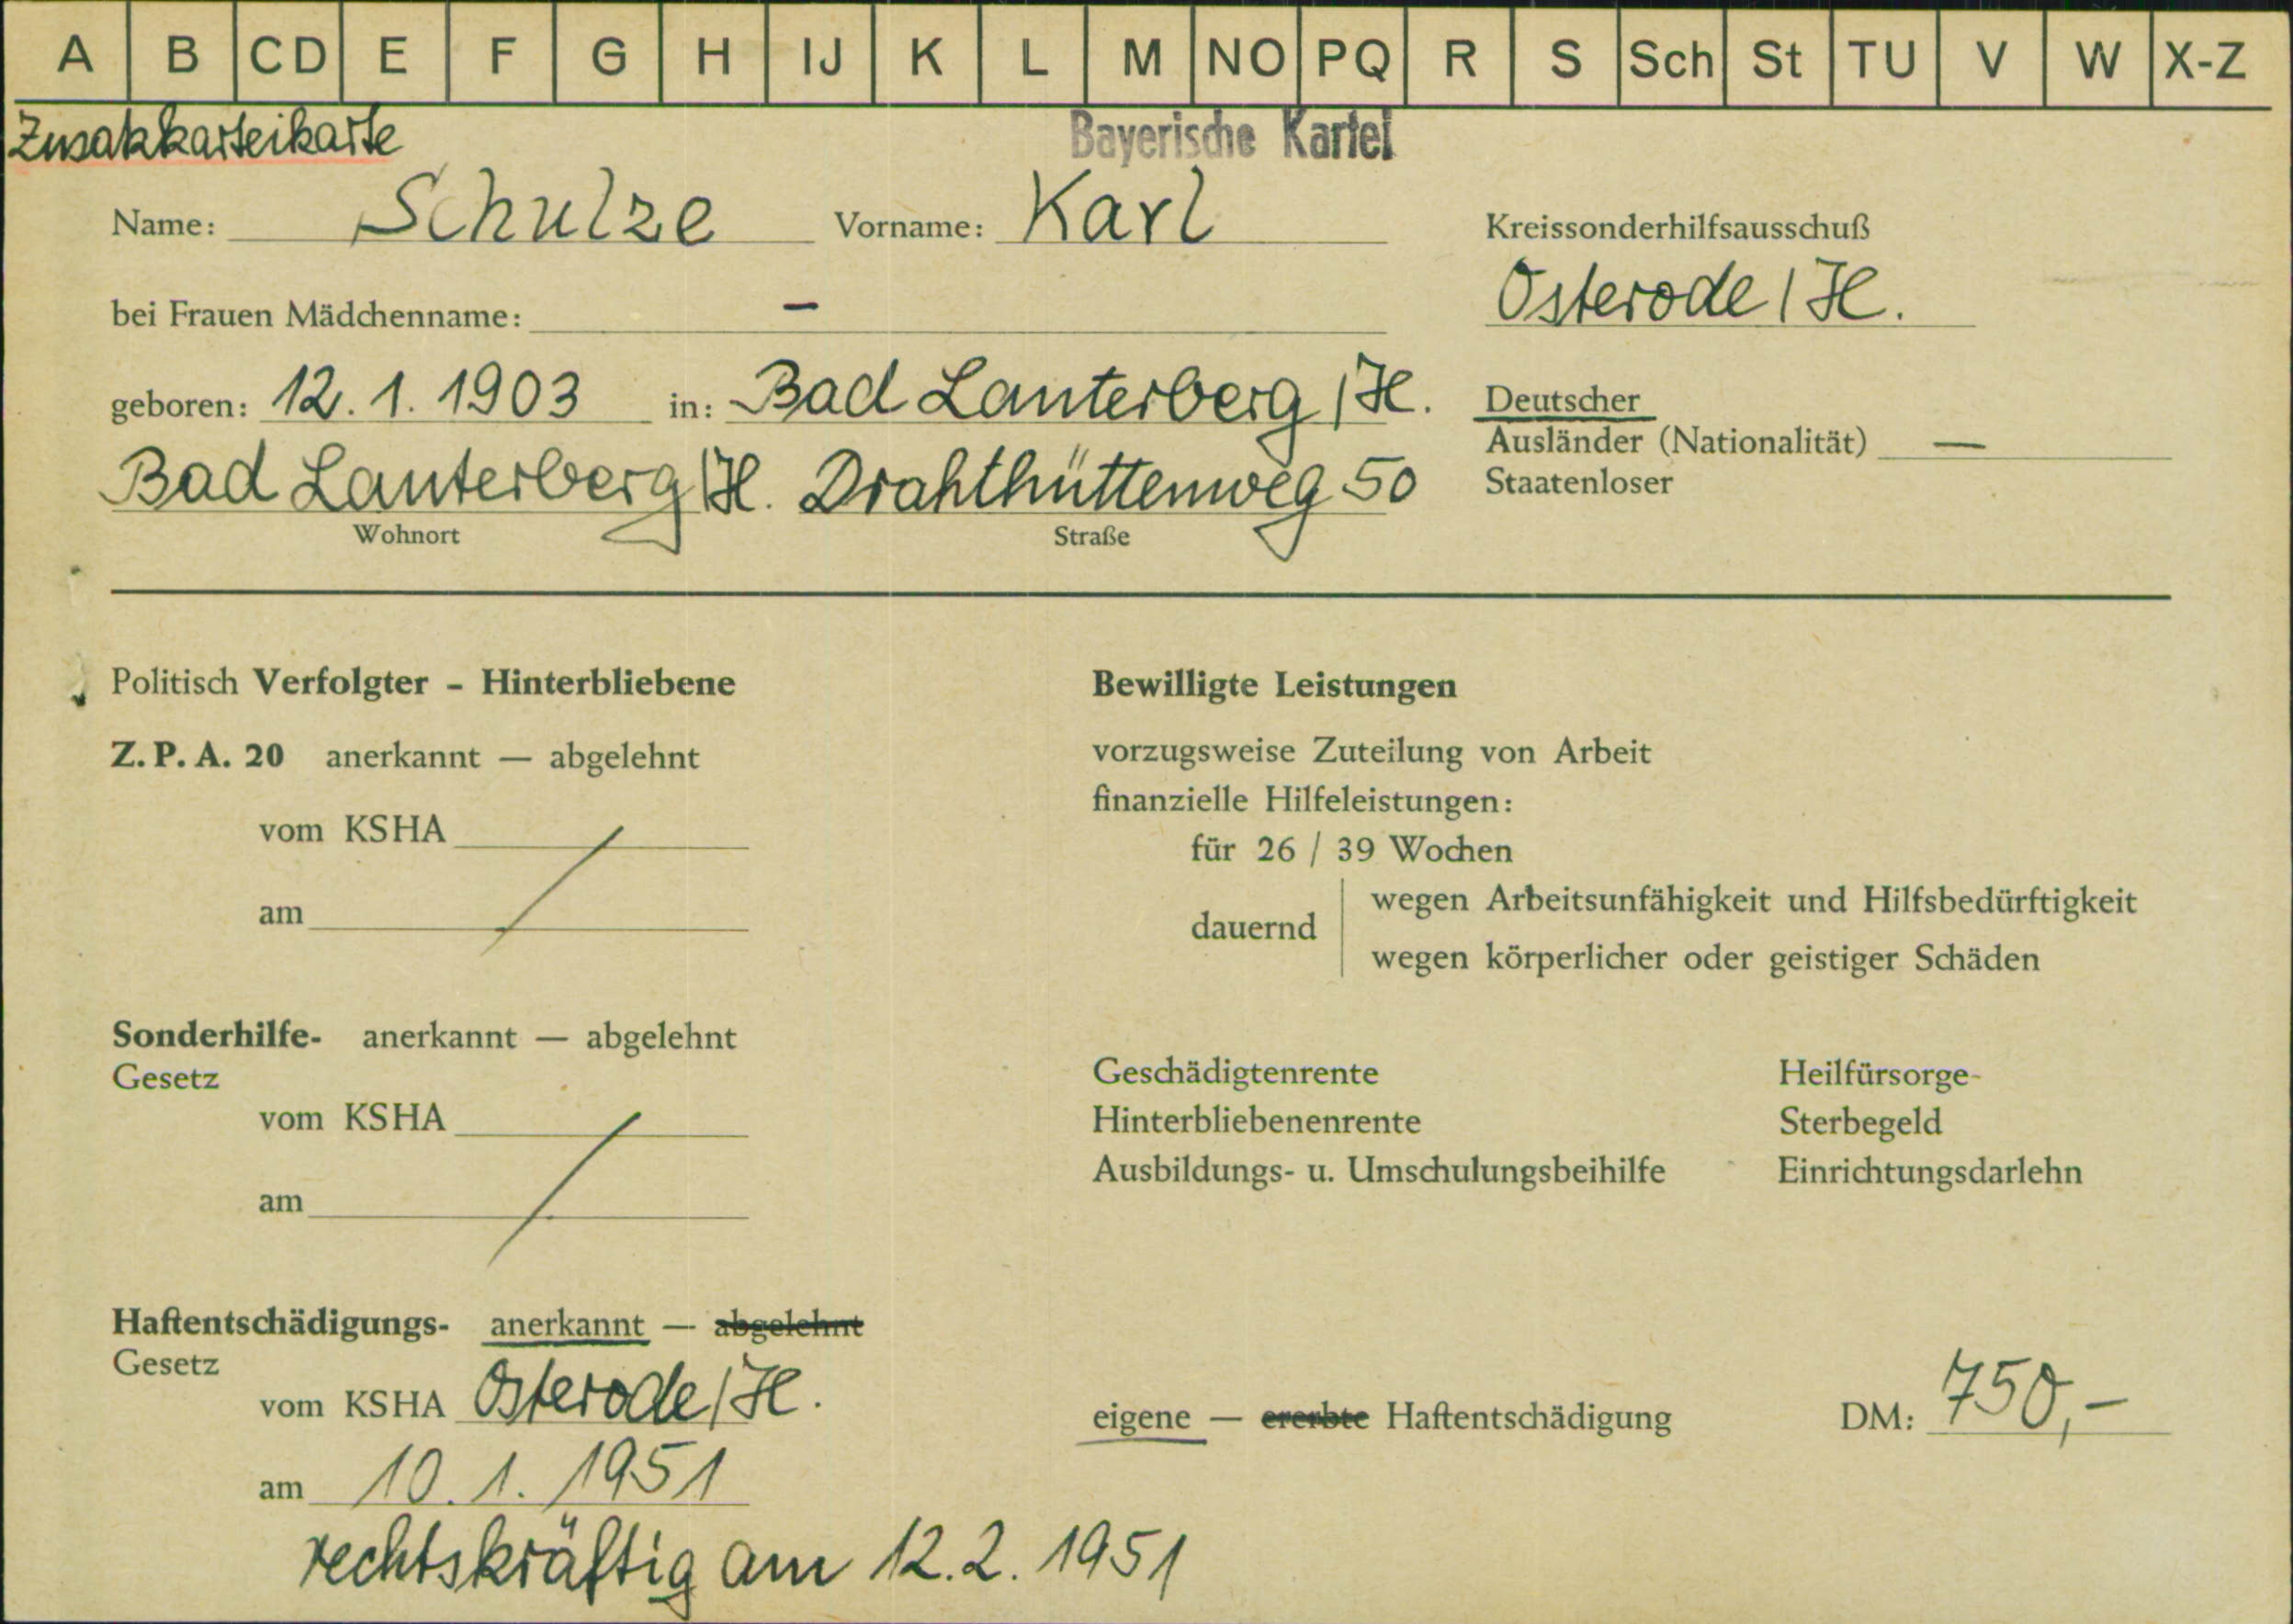 A B CD E F G H IJ K L M NO PQ R S Sch St TU V W X-Z
Zusatzkarteikarte
Bayerische Kartei
Name: Schulze Vorname: Karl
Kreissonderhilfsausschuß
Osterode/H.
bei Frauen Mädchenname: –
geboren: 12.1.1903 in: Bad Lauterberg/H.
Deutscher
Ausländer (Nationalität) —
Staatenloser
Bad Lauterberg/H. Drahthüttenweg 50
Wohnort Straße
Politisch Verfolgter - Hinterbliebene
Z. P. A. 20 anerkannt — abgelehnt
vom KSHA
am
Sonderhilfe- anerkannt — abgelehnt
Gesetz
vom KSHA
am
Haftentschädigungs- anerkannt — abgelehnt
Gesetz
vom KSHA Osterode/H.
am 10.1.1951
rechtskräftig am 12.2.1951
Bewilligte Leistungen
vorzugsweise Zuteilung von Arbeit
finanzielle Hilfeleistungen:
für 26 / 39 Wochen
dauernd
wegen Arbeitsunfähigkeit und Hilfsbedürftigkeit
wegen körperlicher oder geistiger Schäden
Geschädigtenrente Heilfürsorge-
Hinterbliebenenrente Sterbegeld
Ausbildungs- u. Umschulungsbeihilfe Einrichtungsdarlehn
eigene — ererbte Haftentschädigung DM: 750,-